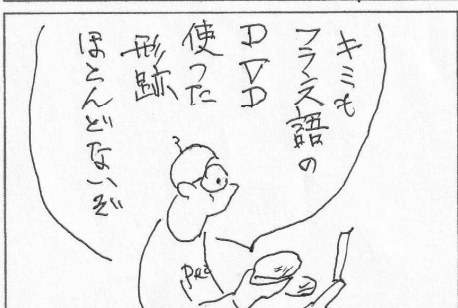 キミも
フランス語の
DVD
使った
形跡
ほとんどないぞ